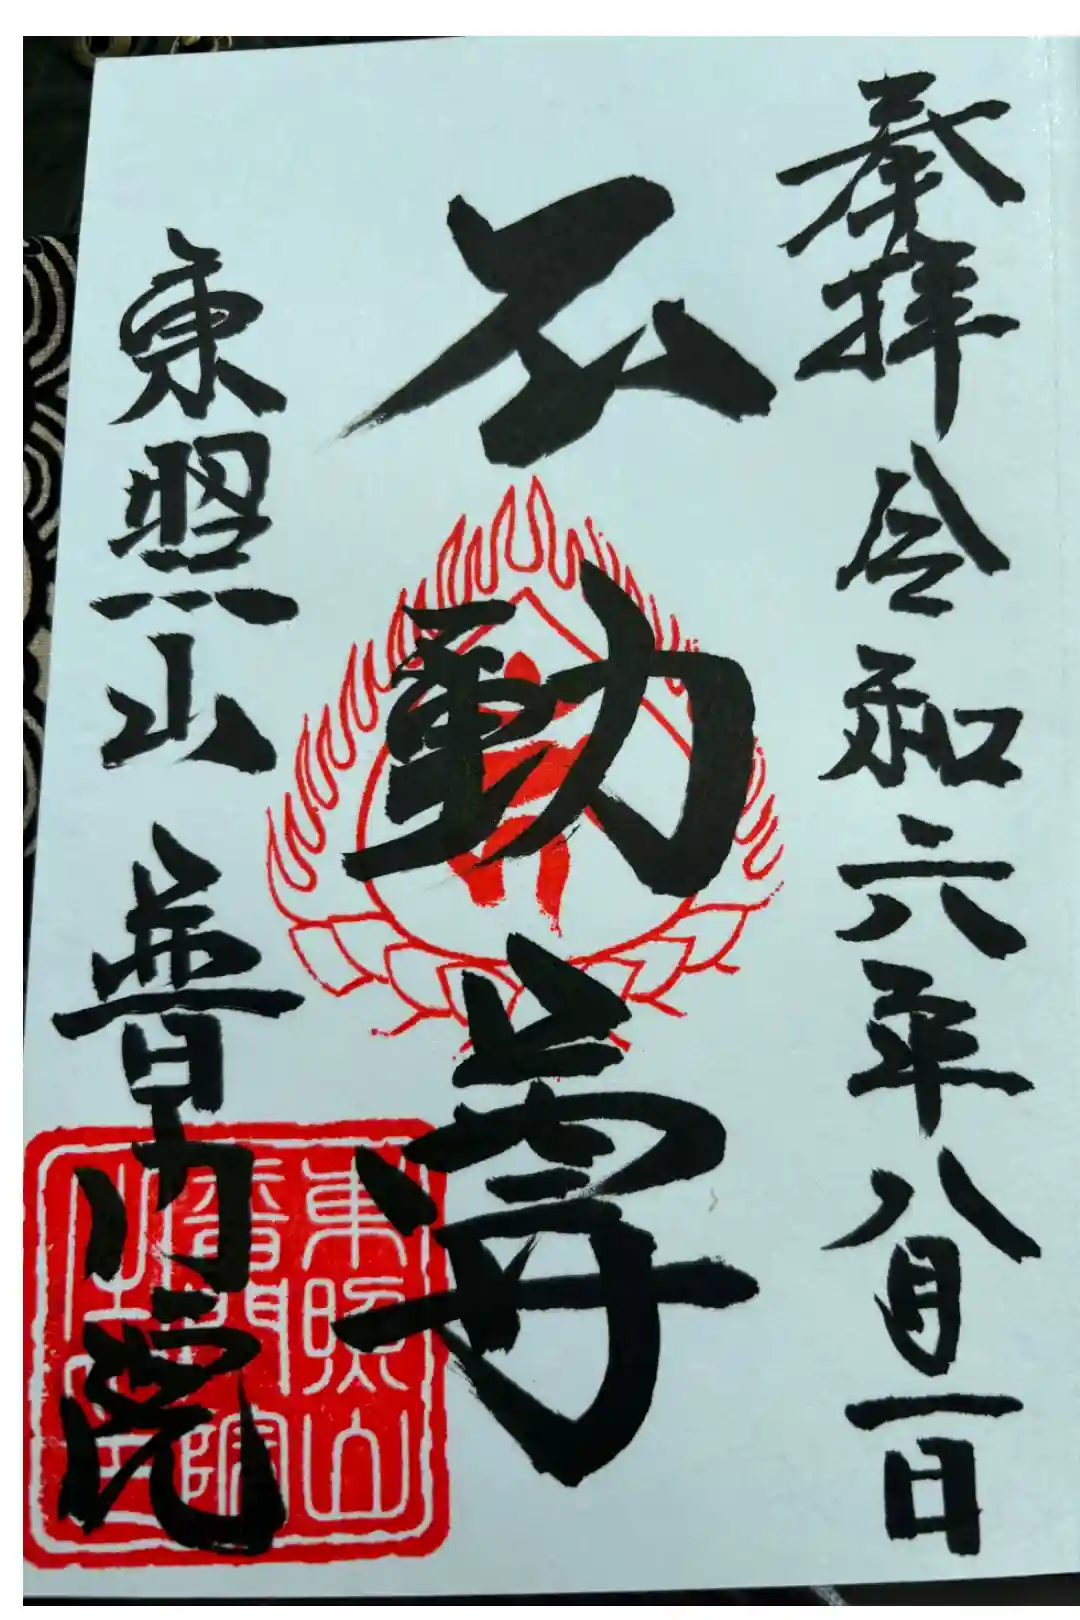 奉拝 令和六年八月一日
不動尊
東照山 普門院
東照山
普門院
之印